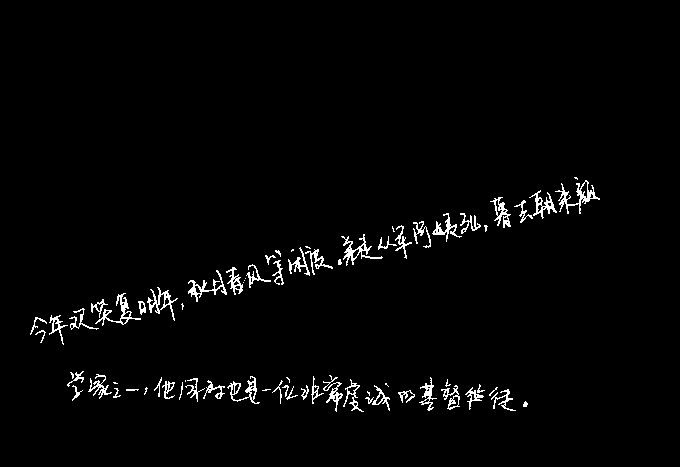 今年欢笑复明年，秋月春风等闲度。弟走从军阿姨死，暮去朝来颜
学家之一，他同时也是一位非常虔诚的基督徒。